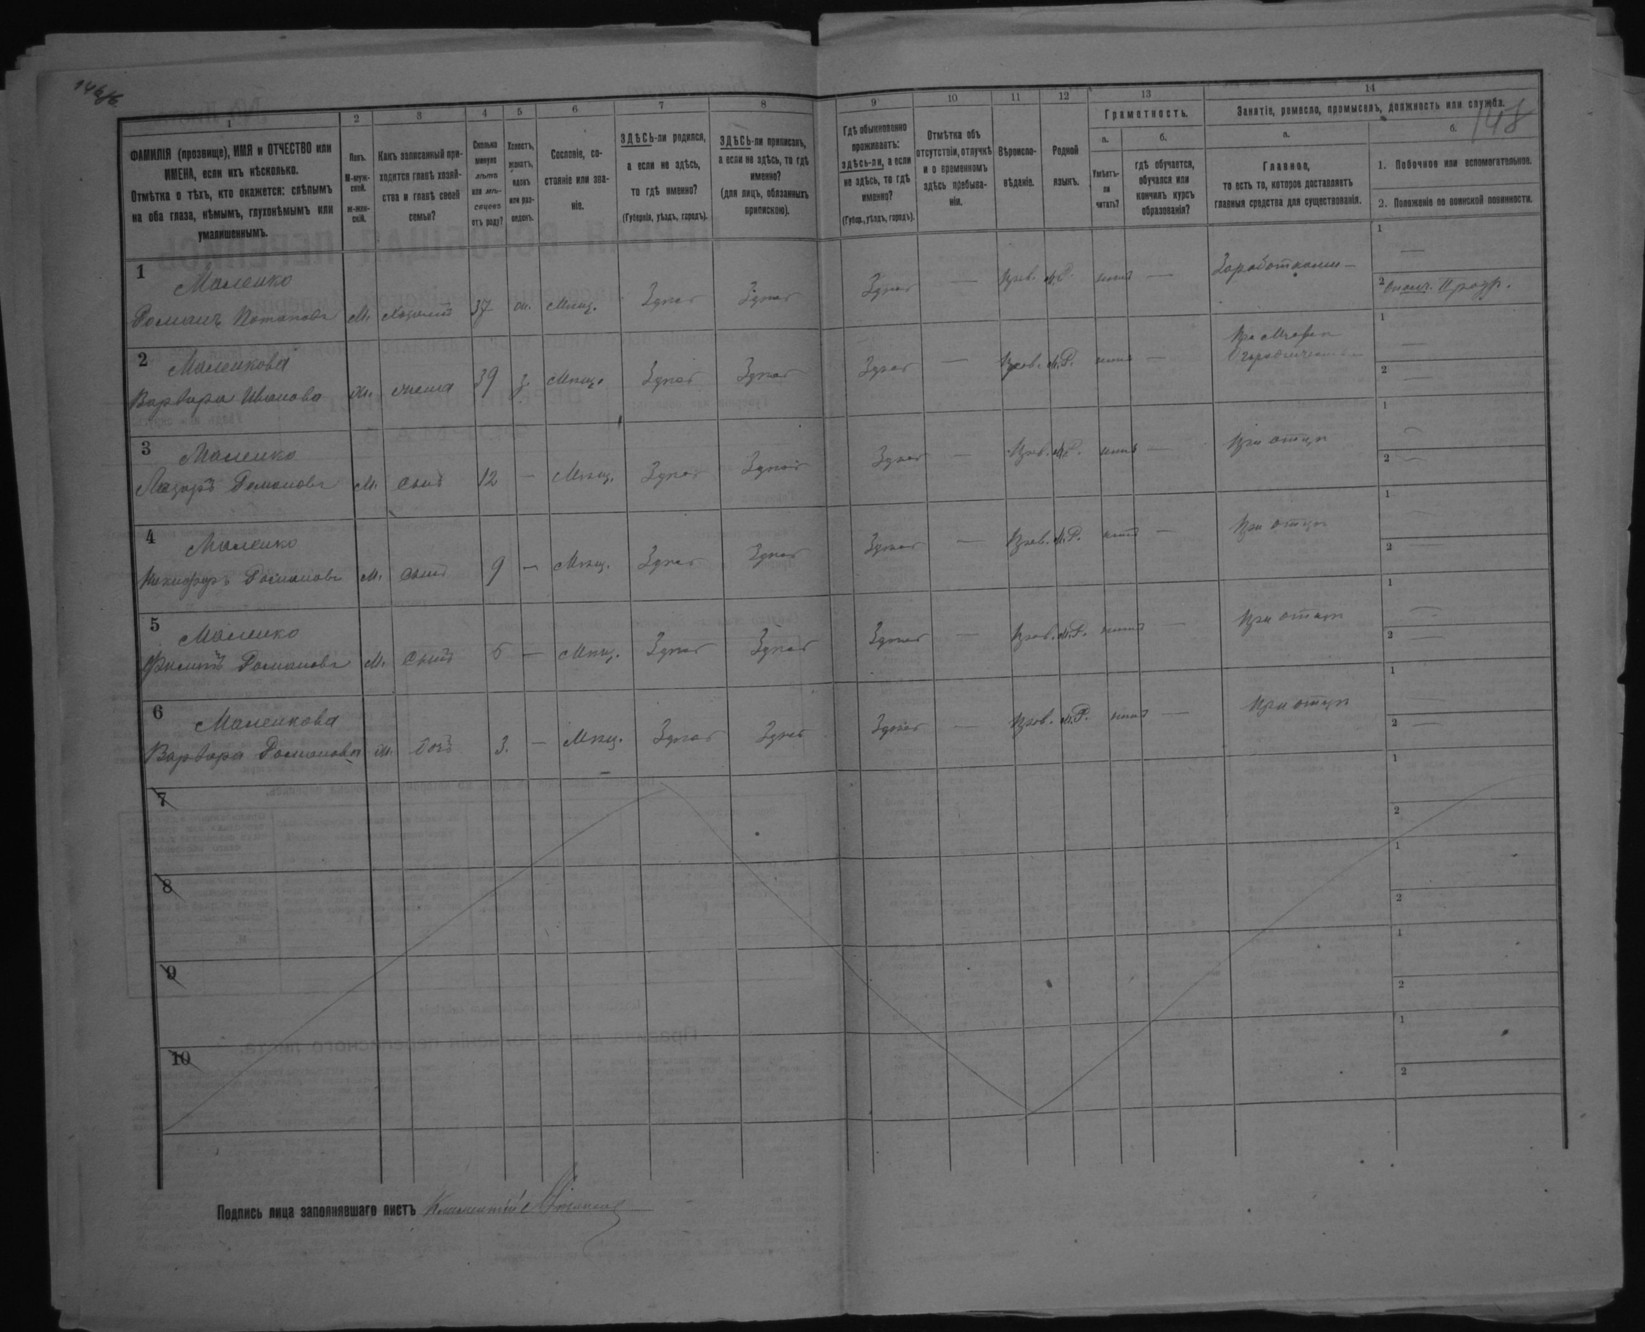 148
1
2
3
4
5
6
7
8
9
10
11
12
13
14
ФАМИЛІЯ (прозвище), ИМЯ и ОТЧЕСТВО или
ИМЕНА, если ихъ нѣсколько.
Отмѣтка о тѣхъ, кто окажется: слѣпымъ
на оба глаза, нѣмымъ, глухонѣмымъ или
умалишеннымъ.
Полъ.
М-муж-
ской.
Ж-жен-
скій.
Какъ записанный при-
ходится главѣ хозяй-
ства и главѣ своей
семьи?
Сколько
минуло
лѣтъ
или мѣ-
сяцевъ
отъ роду?
Холостъ,
женатъ,
вдовъ
или раз-
веденъ.
Сословіе, со-
стояніе или зва-
ніе.
ЗДѢСЬ-ли родился,
а если не здѣсь,
то гдѣ именно?
(Губернія, уѣздъ, городъ).
ЗДѢСЬ-ли приписанъ,
а если не здѣсь, то гдѣ
именно?
(для лицъ, обязанныхъ
припискою).
Гдѣ обыкновенно
проживаетъ:
здѣсь-ли, а если
не здѣсь, то гдѣ
именно?
(Губер., уѣздъ, городъ).
Отмѣтка объ
отсутствіи, отлучкѣ
и о временномъ
здѣсь пребыва-
ніи.
Вѣроиспо-
вѣданіе.
Родной
языкъ.
Грамотность.
а.
Умѣетъ-
ли
читать?
б.
гдѣ обучается,
обучался или
кончилъ курсъ
образованія?
Занятіе, ремесло, промыселъ, должность или служба.
а.
Главное,
то есть то, которое доставляетъ
главныя средства для существованія.
б.
1. Побочное или вспомогательное.
2. Положеніе по воинской повинности.
1 Маленко
Романъ Потаповъ М. хозяинъ 37 ж. Мѣщ. Здѣсь Здѣсь Здѣсь — Прав. М.Р. нѣтъ —
1 —
2
2 Маленкова
Варвара Иванова ж. жена 39 з. Мѣщ. Здѣсь Здѣсь Здѣсь — Прав. М.Р. нѣтъ —
1 —
2 —
3 Маленко
Лазарь Романовъ М. сынъ 12 — Мѣщ. Здѣсь Здѣсь Здѣсь — Прав. М.Р. нѣтъ — При отцѣ
1 —
2 —
4 Маленко
Никифоръ Романовъ М. сынъ 9 — Мѣщ. Здѣсь Здѣсь Здѣсь — Прав. М.Р. нѣтъ — При отцѣ
1
2 —
5 Маленко
Филипъ Романовъ М. сынъ — Мѣщ. Здѣсь Здѣсь Здѣсь — Прав. М.Р. нѣтъ — При отцѣ
1 —
2 —
6 Маленкова
Варвара Романовна ж. дочь 3. — Мѣщ. Здѣсь Здѣсь Здѣсь — Прав. М.Р. нѣтъ — При отцѣ
1 —
2 —
7
1
2
8
1
2
9
1
2
10
1
2
Подпись лица заполнявшаго листъ